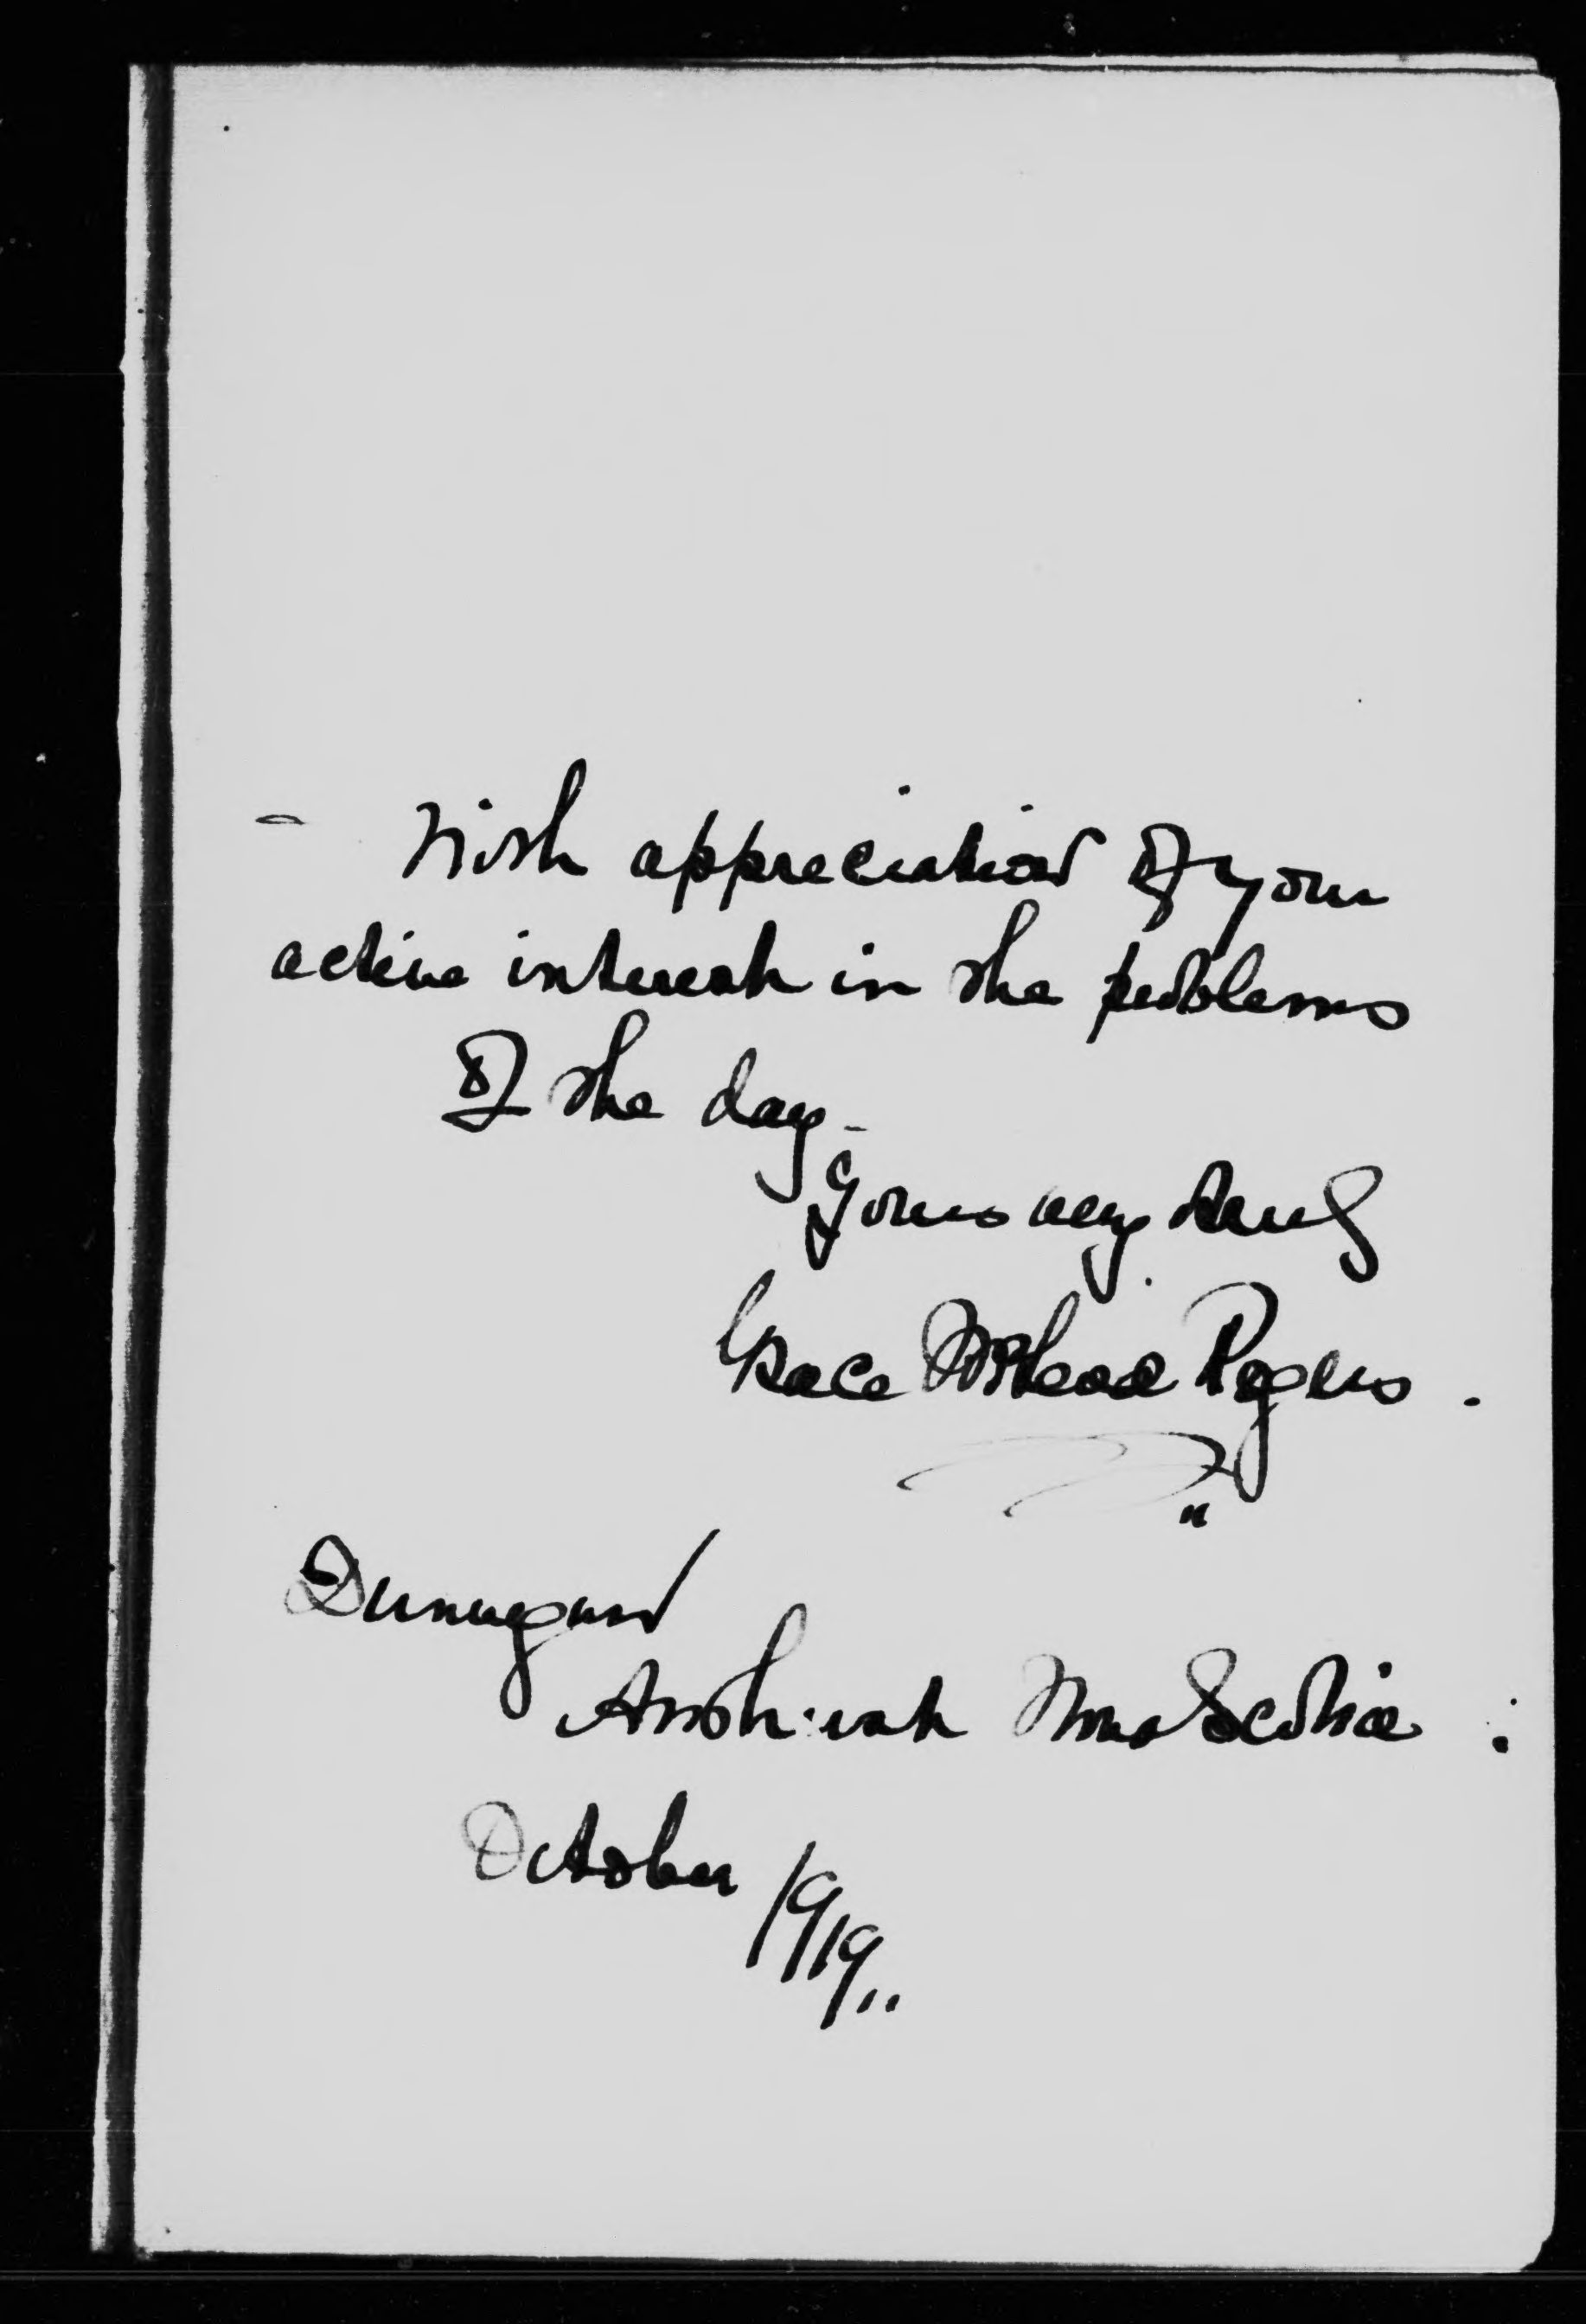 - With appreciation of your
active interest in the problems
of the day -
Yours very truly
Grace McLeod Rogers.
Dunvegan
Amherst Nova Scotia :
October 1919..